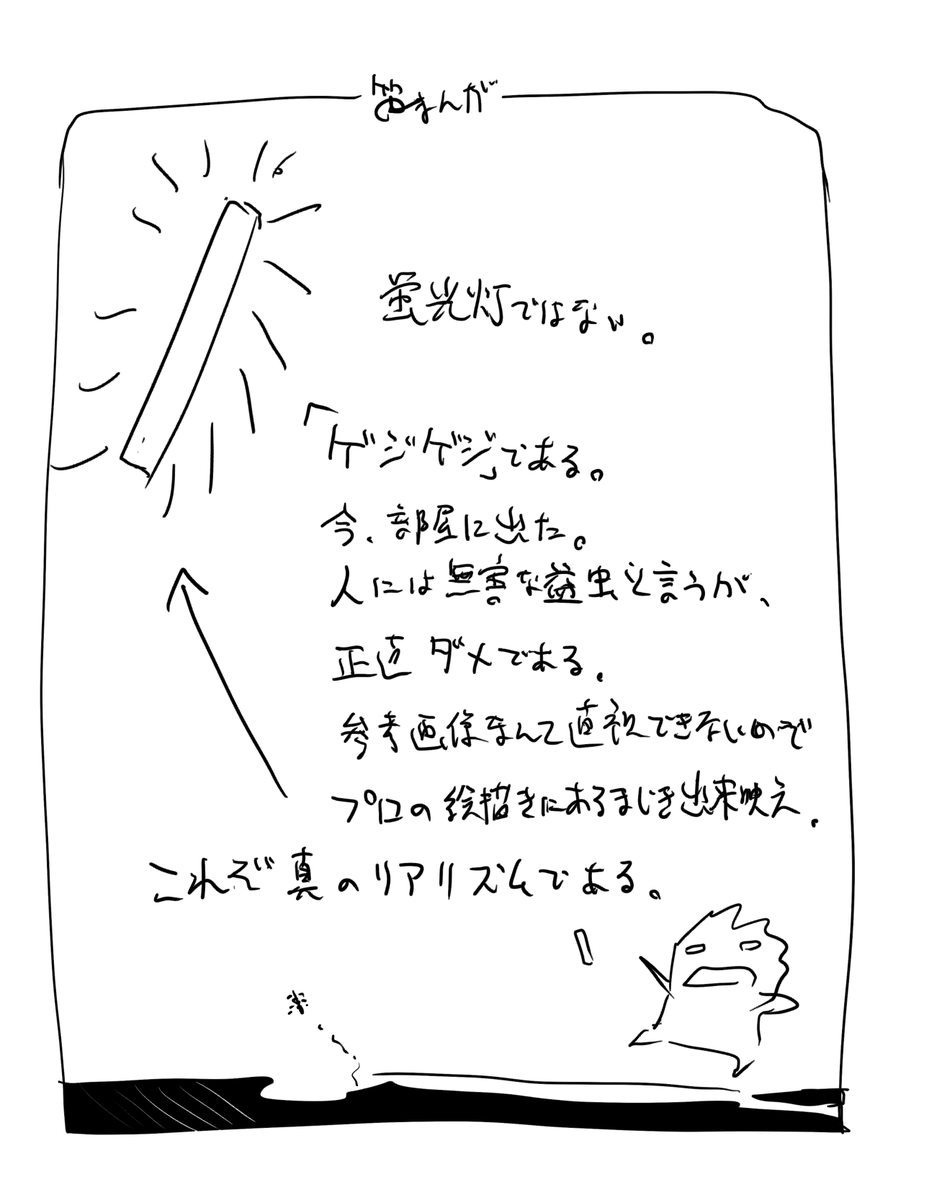 笛まんが
蛍光灯ではない。
「ゲジゲジ」である。
今、部屋に出た。
人には無害な益虫と言うが、
正直ダメである。
参考画像なんて直視できないので
プロの絵描きにあるまじき出来映え。
これぞ真のリアリズムである。